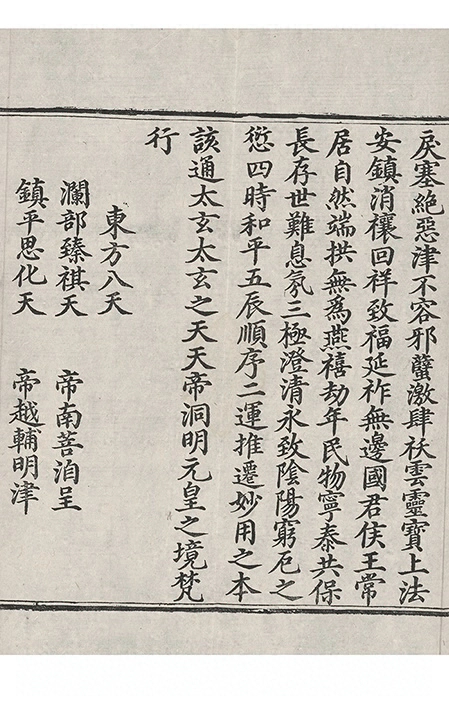 戾塞絕惡津不容邪孽激肆祅雲靈寶上法
安鎮消禳回祥致福延祚無邊國君侯王常
居自然端拱無為燕禧劫年民物寧泰共保
長存世難息氛三極澄清永致陰陽窮厄之
愆四時和平五辰順序二運推遷妙用之本
該通太玄太玄之天天帝洞明元皇之境梵
行
東方八天
瀾部臻祺天　帝南菩洎呈
鎮平思化天　帝越輔明津